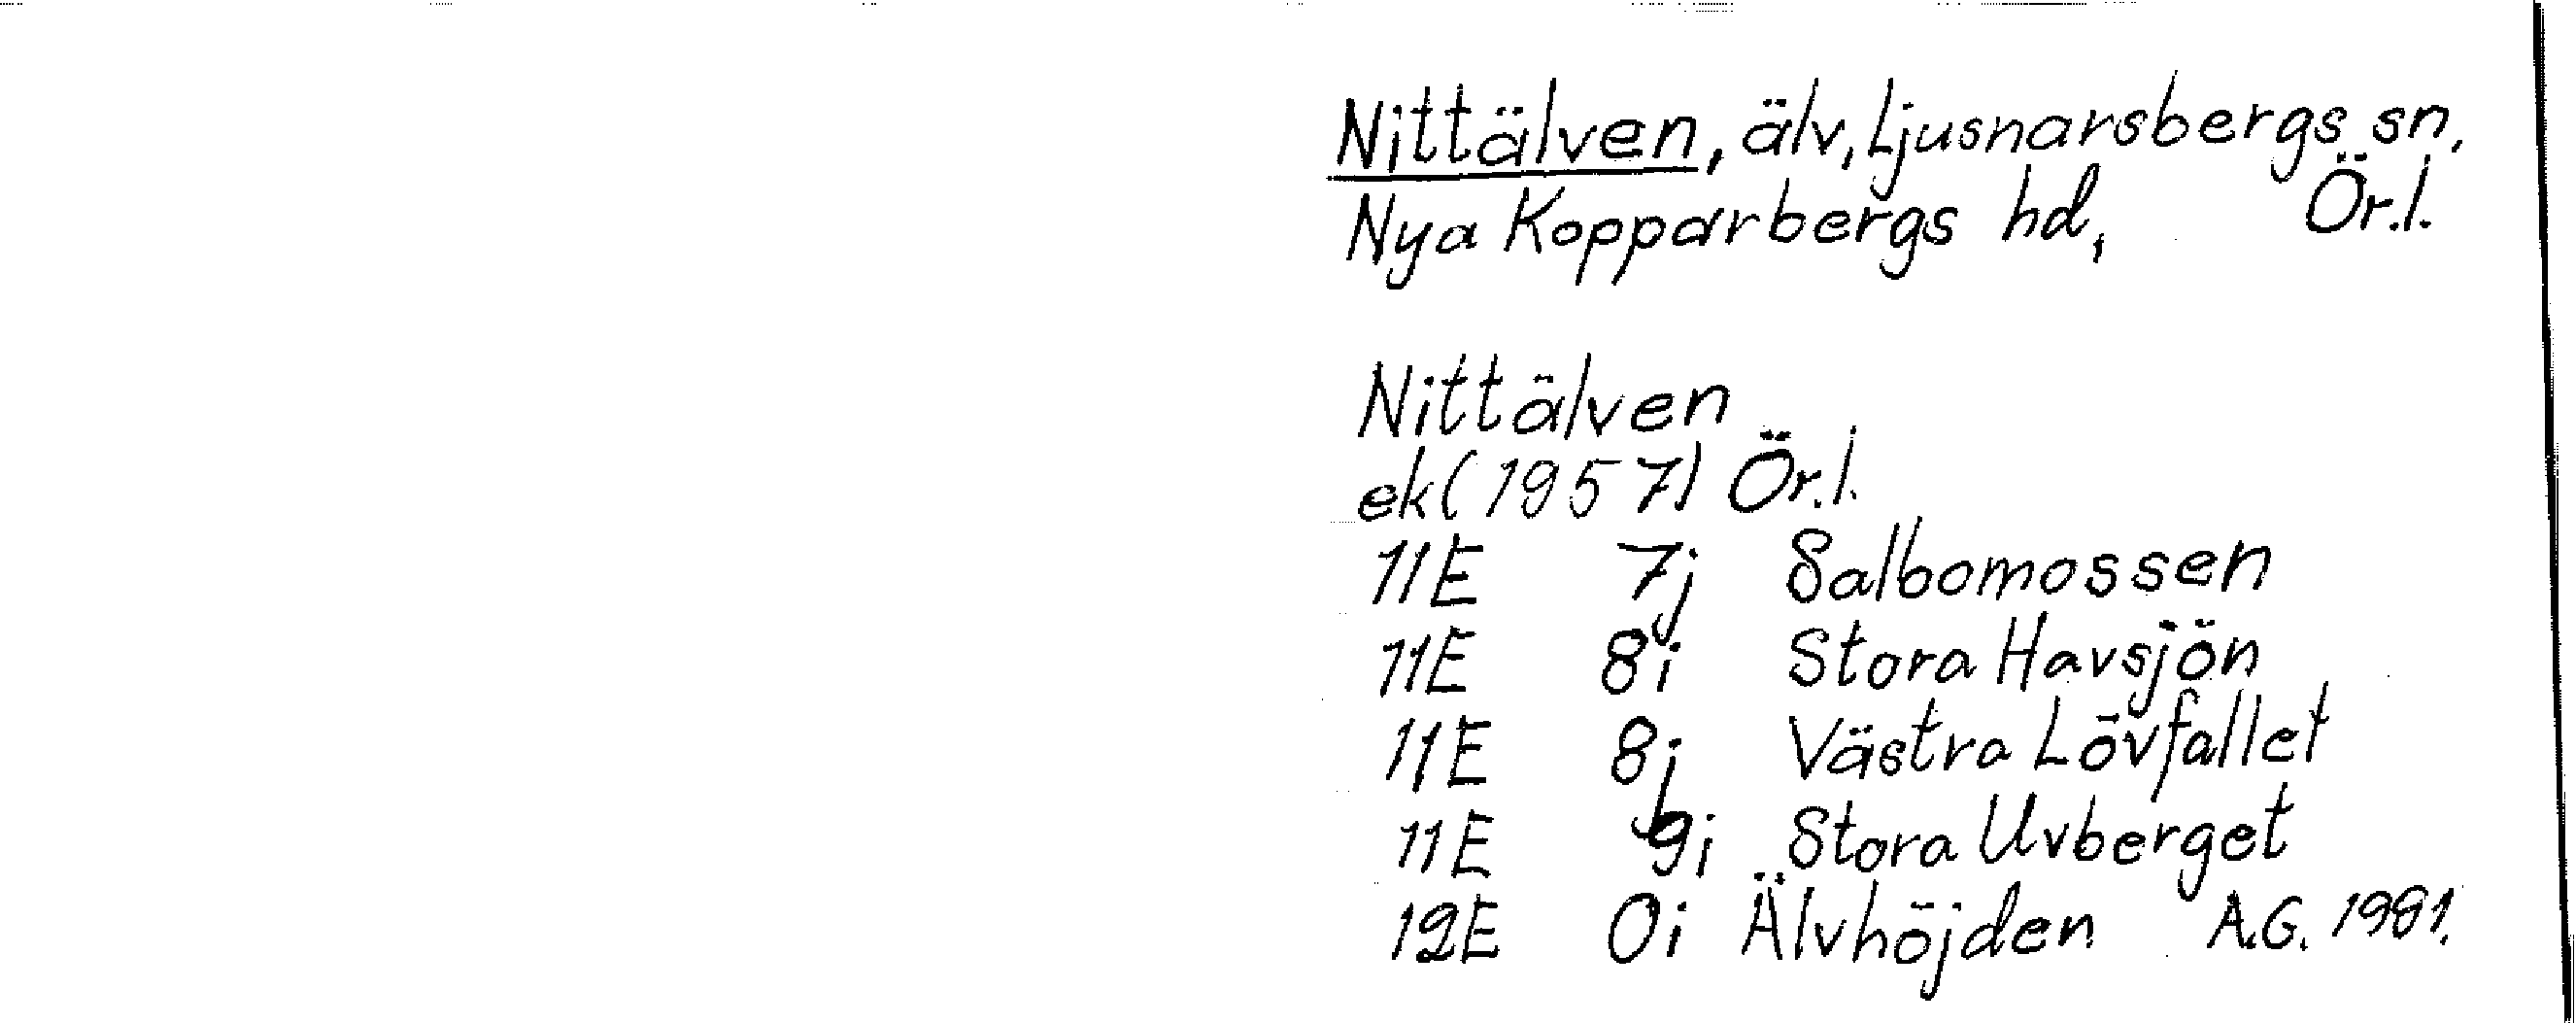 Nittälven, älv, Ljusnarsbergs sn,
Nya Kopparbergs hd, Ör.l.
Nittälven
ek (1957) Ör.l.
11E 7j Salbomossen
11E 8i Stora Havsjön
11E 8j Västra Lövfallet
11E 9i Stora Uvberget
12E 0i Älvhöjden A.G. 1981.